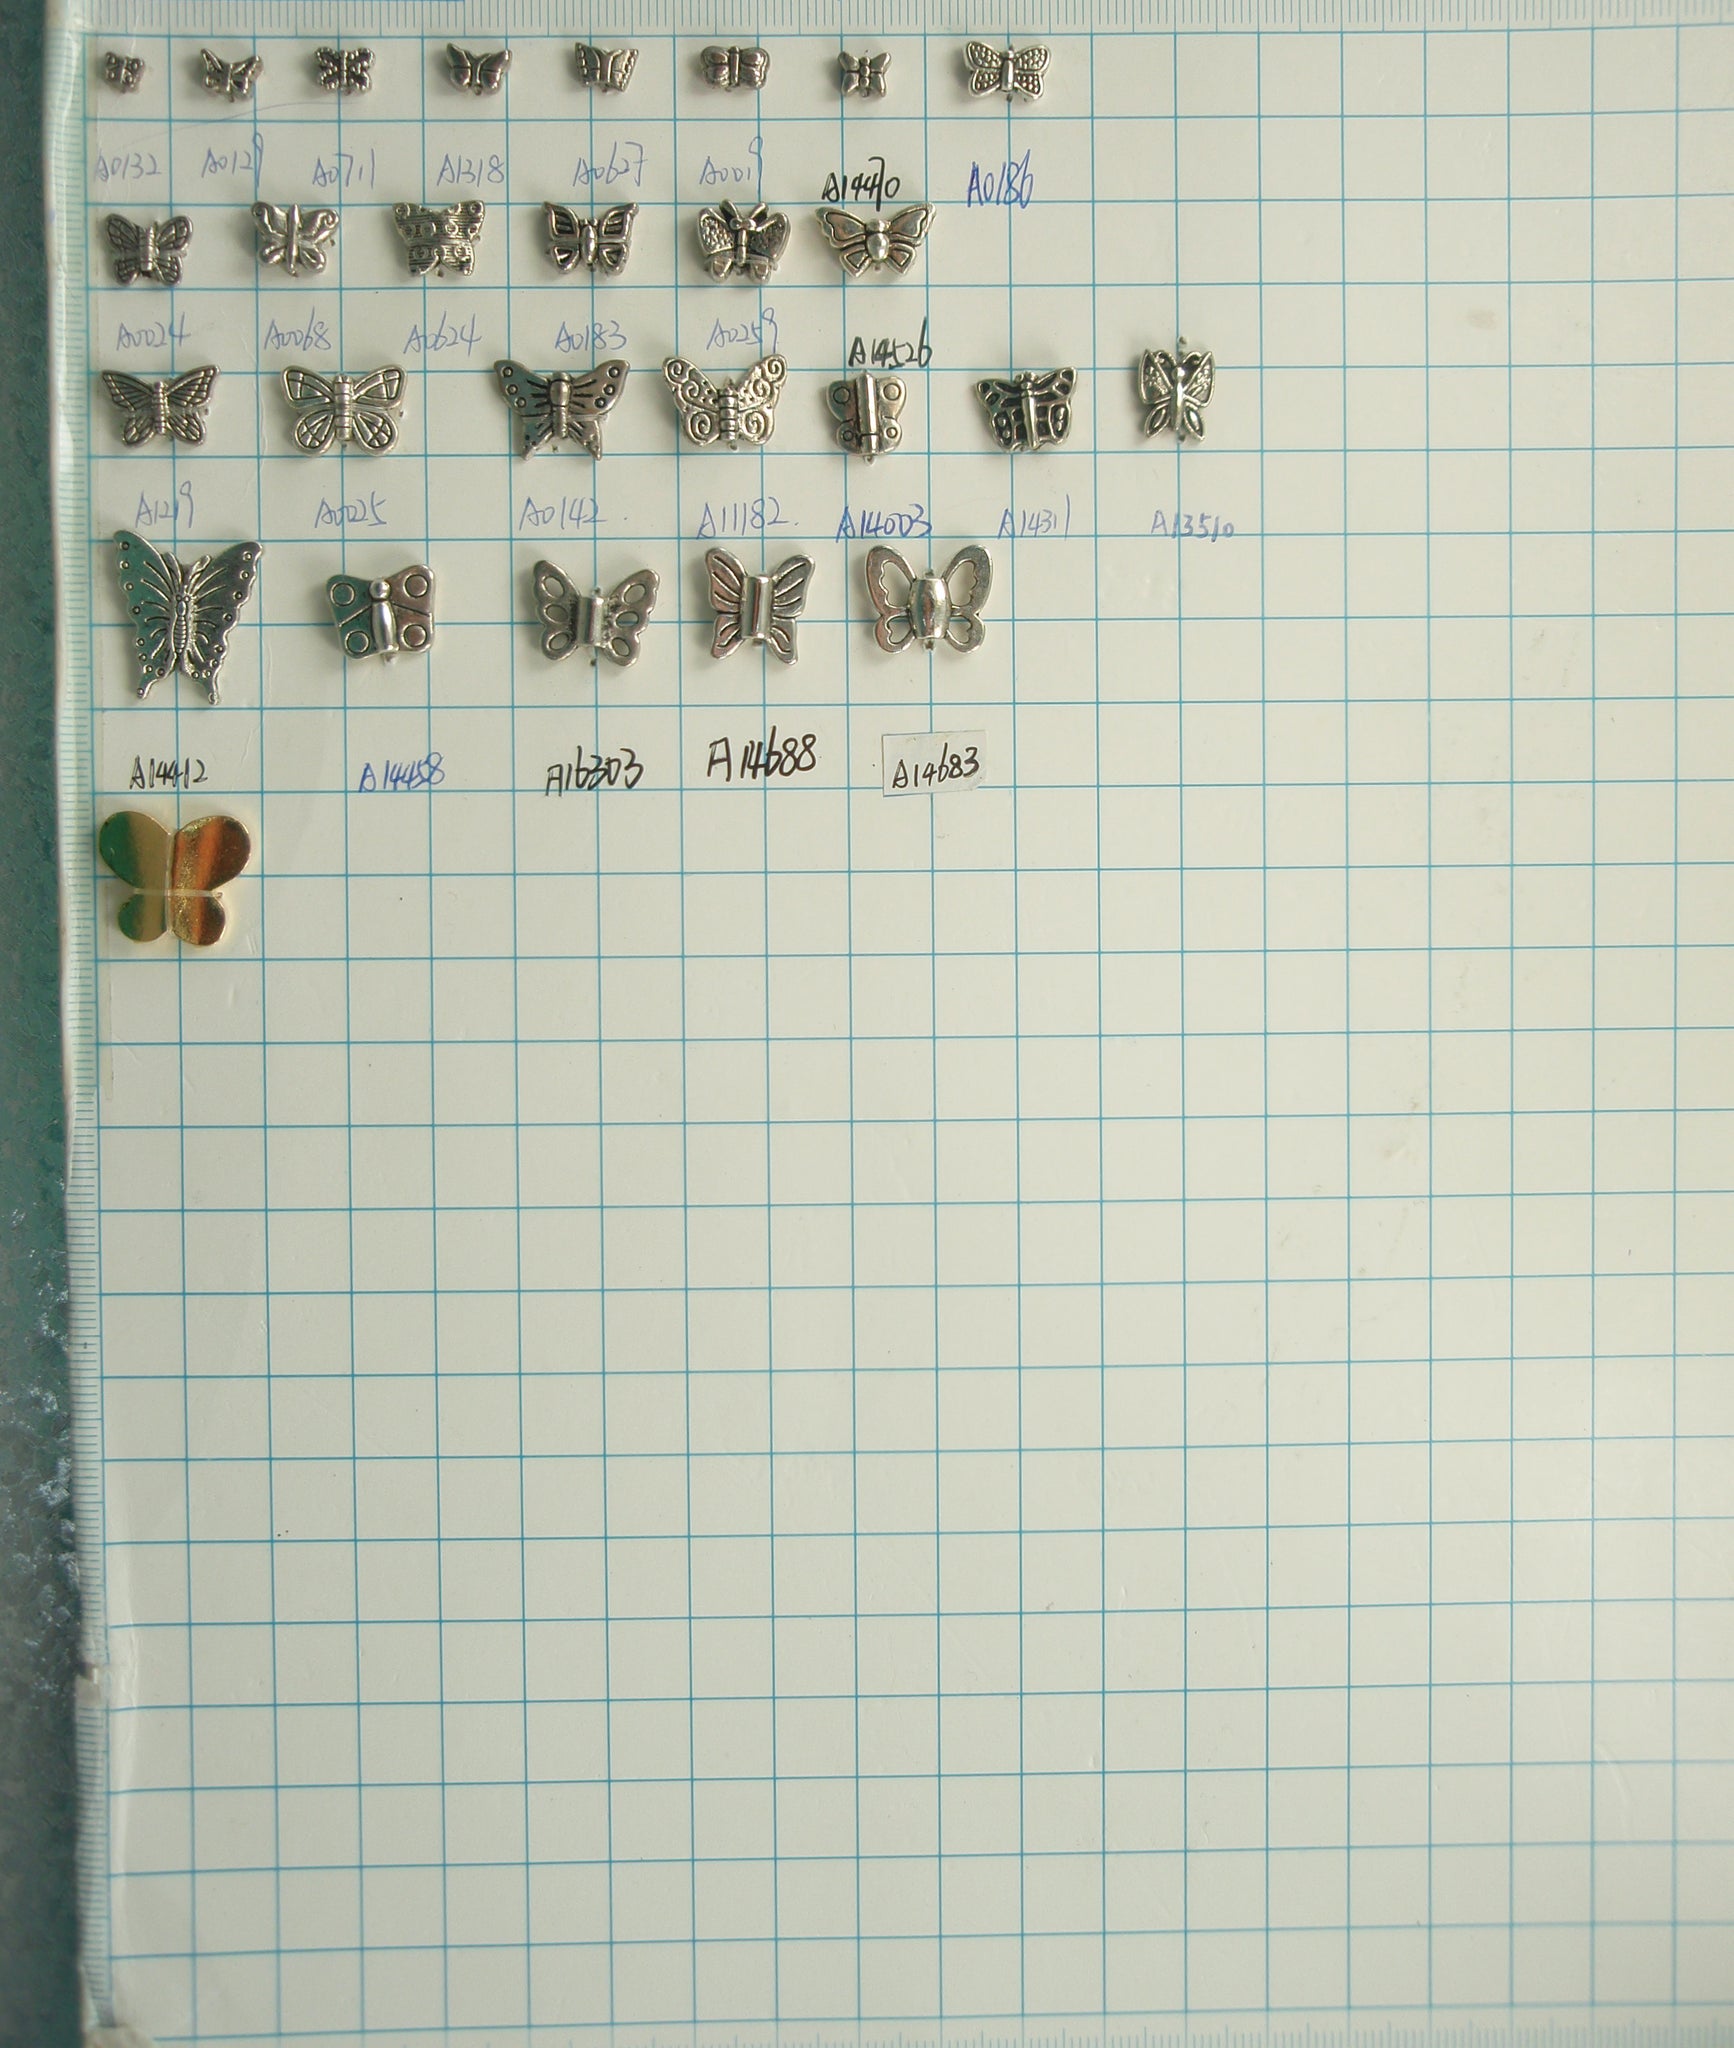 A0132 A0129 A0711 A1318 A0627 A0019 A14470 A0186
A0024 A0068 A0624 A0183 A0259 A14526
A1219 A0025 A0142 A11182 A14003 A1431 A13510
A14412 A14458 A16303 A14688 A14683